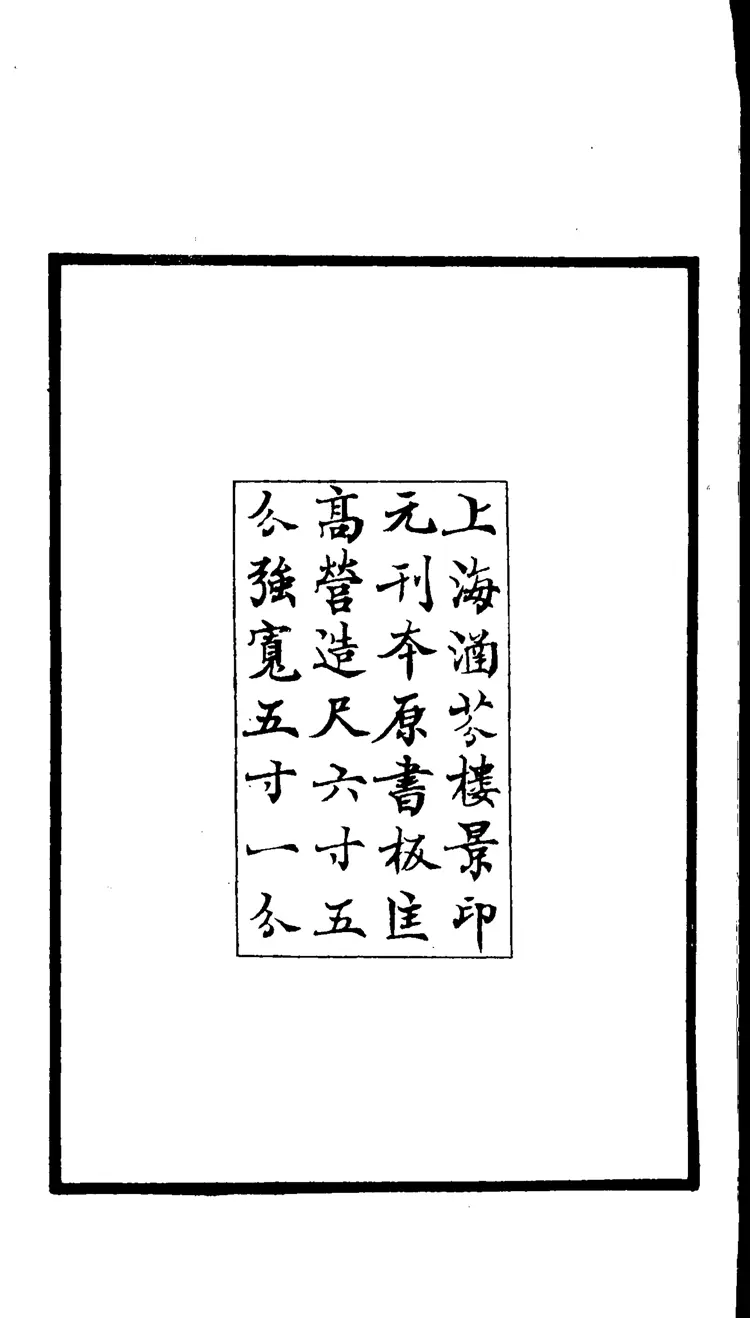 上海涵芬樓景印
元刊本原書板匡
高營造尺六寸五
分強寬五寸一分